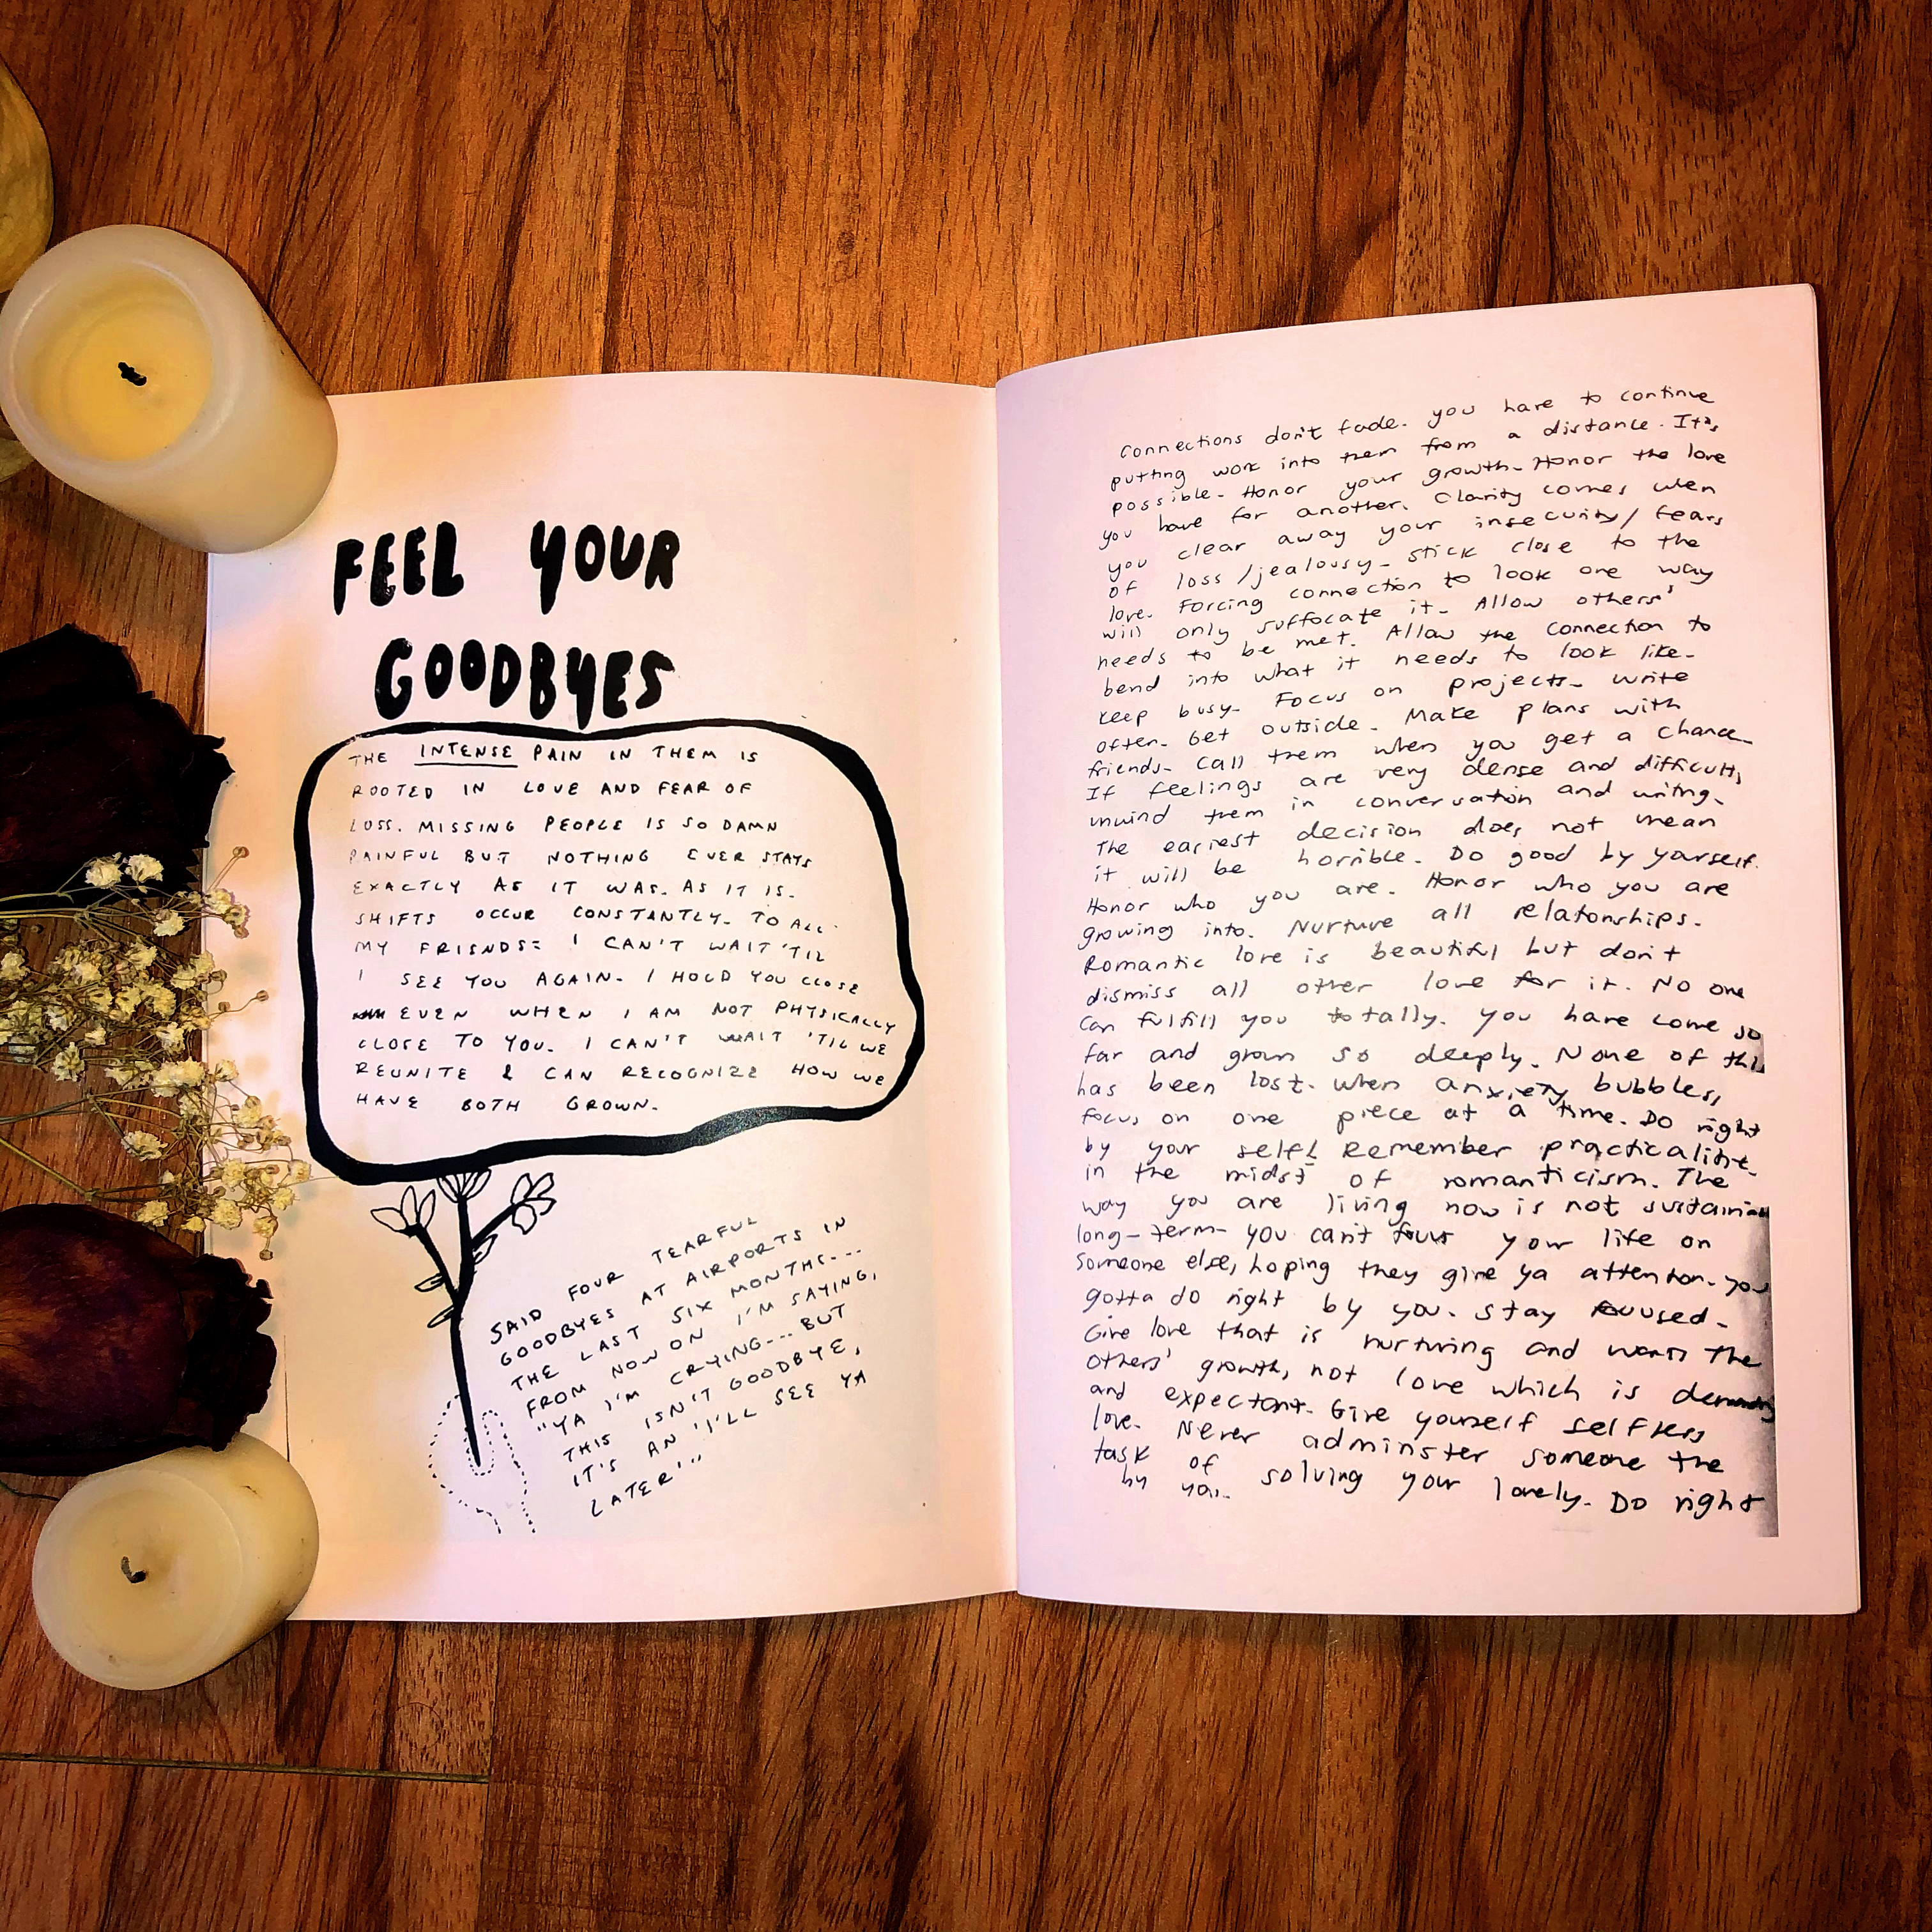 FEEL YOUR
GOODBYES
THE INTENSE PAIN IN THEM IS
ROOTED IN LOVE AND FEAR OF
LOSS. MISSING PEOPLE IS SO DAMN
PAINFUL BUT NOTHING EVER STAYS
EXACTLY AS IT WAS. AS IT IS.
SHIFTS OCCUR CONSTANTLY. TO ALL
MY FRIENDS: I CAN'T WAIT 'TIL
I SEE YOU AGAIN. I HOLD YOU CLOSE
EVEN WHEN I AM NOT PHYSICALLY
CLOSE TO YOU. I CAN'T WAIT 'TIL WE
REUNITE & CAN RECOGNIZE HOW WE
HAVE BOTH GROWN.
SAID FOUR TEARFUL
GOODBYES AT AIRPORTS IN
THE LAST SIX MONTHS...
FROM NOW ON I'M SAYING,
"YA I'M CRYING... BUT
THIS ISN'T GOODBYE,
IT'S AN 'I'LL SEE YA
LATER'"
Connections don't fade. you have to continue
putting work into them from a distance. It's
possible. Honor your growth. Honor the love
you have for another. Clarity comes when
you clear away your insecurity/fears
of loss/jealousy. stick close to the
love. Forcing connection to look one way
will only suffocate it. Allow others'
needs to be met. Allow the connection to
bend into what it needs to look like.
Keep busy. Focus on projects. write
often. Get outside. Make plans with
friends. Call them when you get a chance.
If feelings are very dense and difficult,
unwind them in conversation and writing.
The easiest decision does not mean
it will be horrible. Do good by yourself.
Honor who you are. Honor who you are
growing into. Nurture all relatonships.
Romantic love is beautiful but don't
dismiss all other love for it. No one
can fulfill you totally. You have come so
far and grown so deeply. None of this
has been lost. when anxiety bubbles,
focus on one piece at a time. Do right
by your self! Remember practicality
in the midst of romanticism. The
way you are living now is not
long-term. you can't focus your life on
someone else, hoping they give ya attention. you
gotta do right by you. Stay focused.
Give love that is nurturing and wants the
others' growth, not love which is
and expectant. Give yourself selfless
love. Never adminster someone the
task of solving your lonely. Do right
by you.